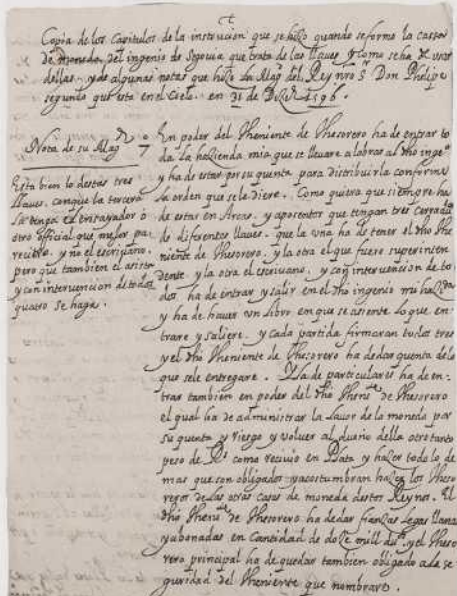 Copia de los Capitulos de la instrucion que se hizo quando se formo la cassa
de moneda del ingenio de Segouia que trata de las llaues y como se ha de usar
dellas. y de algunas notas que hizo su Magd del Rey nro Sr Don Phelipe
segundo que esta en el Cielo. en 31 de 1596.
Nota de su Magd
Esta bien lo destas tres
llaues. con que la tercera
la tenga el ensayador o
otro official que mejor pa-
reciere. y no el escriuano.
pero que tambien el asista
y con interuencion de todos
quatro se haga.
7 En poder del Theniente de Thesorero ha de entrar to
da la hazienda mia que se lleuare a labrar al dho ingeo
y ha de estar por su quenta para distribuirla conforme
la orden que se le diere. Como quiera que siempre ha
de estar en Arcas. y aposentos que tengan tres cerraduras
de diferentes llaues. que la una ha de tener el dho The
niente de Thesorero. y la otra el que fuere superinten
dente. y la otra el escriuano. y con interuencion de to
dos ha de entrar y salir en el dho ingenio mi hazda
y ha de hauer un libro en que se asiente lo que en-
trare y saliere. y cada partida firmaran todos tres
y el dho Theniente de Thesorero ha de dar quenta de lo
que se le entregare. La de particulares ha de en-
trar tambien en poder del dho Thente de Thesorero
el qual ha de administrar la lauor de la moneda por
su quenta y riesgo y voluer al dueño della otro tanto
peso de Rs como reciuio en Pasta y hazer todo lo de
mas que son obligados y acostumbran hazer los Theso
reros de las otras casas de moneda destos Reynos. El
dho Thente de Thesorero ha de dar fianzas legas llanas
y abonadas en Cantidad de doze mill ds. y el Theso
rero principal ha de quedar tambien obligado a la se
guridad del Theniente que nombrare.